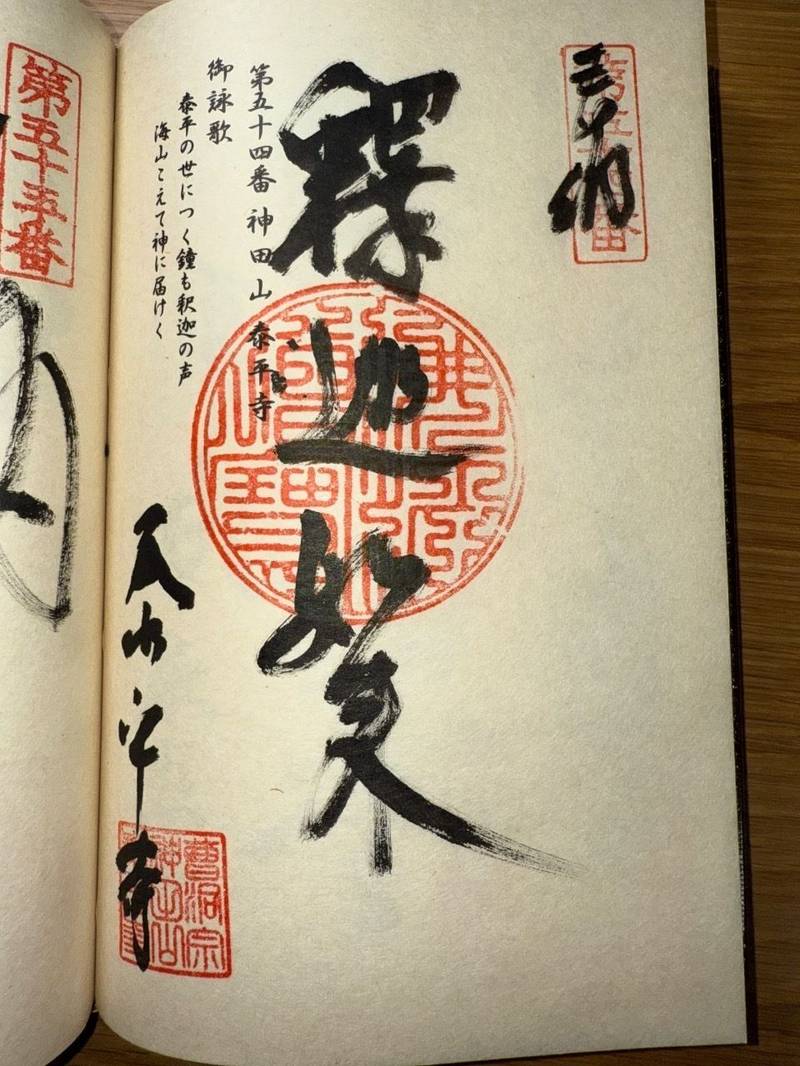 奉納
第五十四番
釋迦如来
第五十四番 神田山 泰平寺
御詠歌
泰平の世につく鐘も釈迦の声
海山こえて神に届けく
泰平寺
曹洞宗
神田山
第五十五番